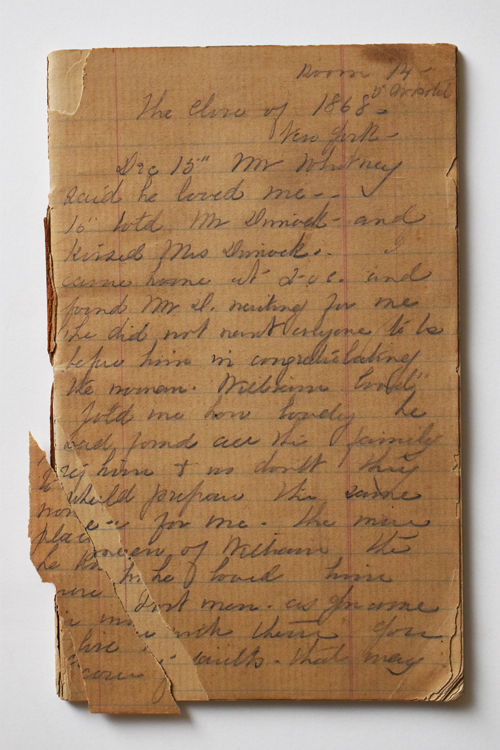 Room 14
The Close of 1868 -
New York -
Dec 15" Mr Whitney
said he loved me - -
16" told Mr Dimock - and
kissed Mrs Dimock. I
came home at 2-oc. and
found Mr D. waiting for me
he did not want anyone to be
before him in congratulating
the woman. William loved"
told me how lovely he
had found all the family
him & no doubt they
would prepare the same
place for me. the more
of William the
he loved him
men. as for some
with them you
that may